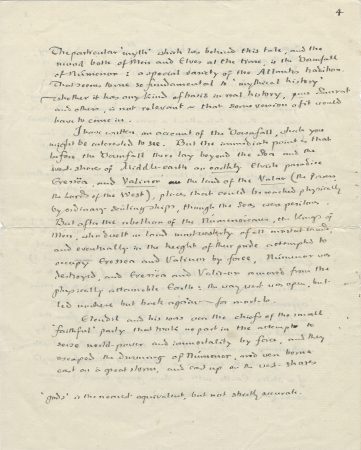 4
The particular 'myth' which lies behind this tale, and the
mood both of Men and Elves at this time, is the Downfall
of Númenor: a special variety of the Atlantis tradition.
That seems to me so fundamental to 'mythical history' –
whether it has any kind of basis in real history, pace Saurat
and others, is not relevant – that some version of it would
have to come in.
I have written an account of the Downfall, which you
might be interested to see. But the immediate point is that
before the Downfall there lay beyond the sea and the
west-shores of Middle-earth an earthly Elvish paradise
Eressëa, and Valinor the land of the Valar (the Powers,
the Lords of the West), places that could be reached physically
by ordinary sailing-ships, though the Seas were perilous.
But after the rebellion of the Númenóreans, the Kings of
Men, who dwelt in a land most westerly of all mortal lands,
and eventually in the height of their pride attempted to
occupy Eressëa and Valinor by force, Númenor was
destroyed, and Eressëa and Valinor removed from the
physically attainable Earth: the way west was open, but
led nowhere but back again – for mortals.
Elendil and his sons were the chiefs of the small
'faithful' party that took no part in the attempt to
seize world-power and immortality by force, and they
escaped the drowning of Númenor, and were borne
east on a great storm, and cast up on the west-shores
'gods' is the nearest equivalent, but not strictly accurate.